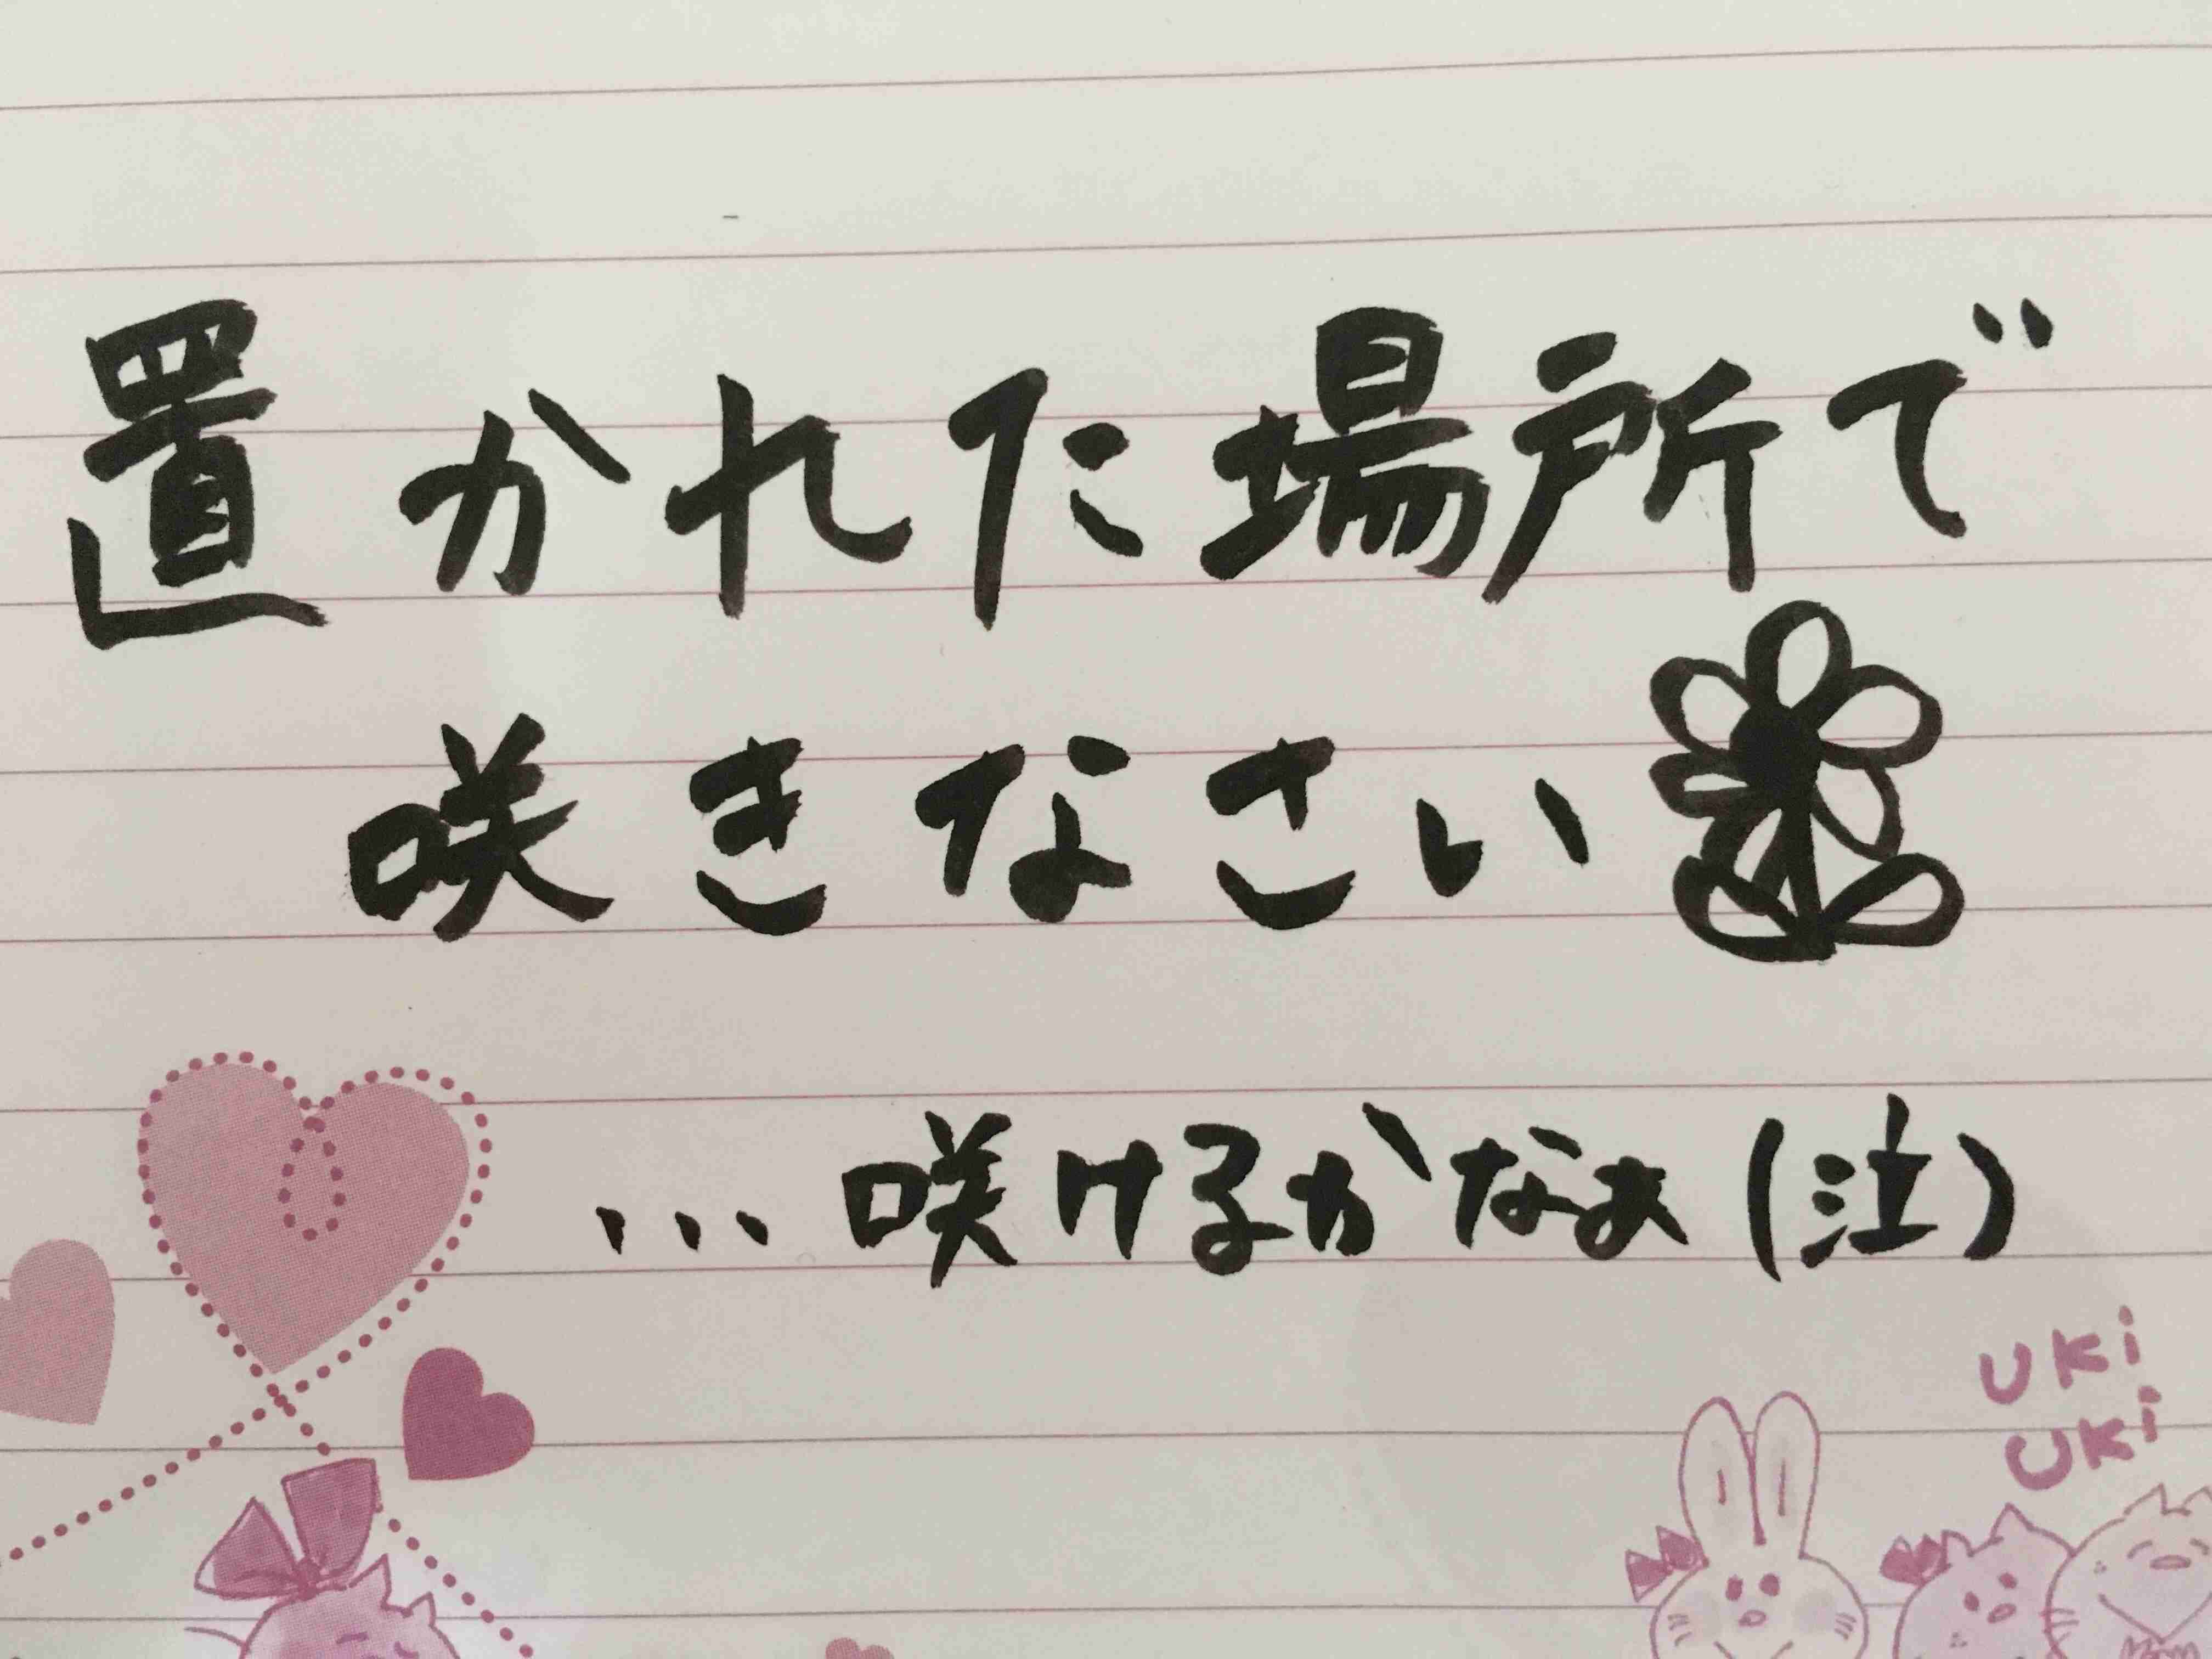 置かれた場所で
咲きなさい
...咲けるかなぁ(泣)
UKi
UKi